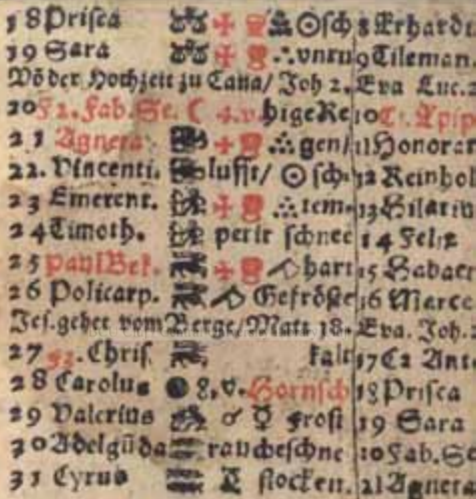 18 Prisca ☉ sch 8 Erhardt.
19 Sara unru 9 Tileman.
Vō der Hochzeit zu Cana/ Joh 2. Eva Luc. 2
20 F2. Fab. Se. ☾ 4. v. hige Re 10 C1. Epip
21 Agneta gen/ 11 Honorat
22. Vincenti. lufft/ ☉ sch 12 Reinhol
23 Emerent. tem 13 Hilariu
24 Timoth. perir schnee 14 Felix
25 paul Bek. hart 15 Habac
26 Policarp. Gefröste 16 Marce
Jes. gehet vom Berge/ Matt 18. Eva. Joh. 2
27 F3. Chris. kalt 17 C2 Ant
28 Carolus ● 8, v. Hornsch 18 Prisca
29 Valerius ♂ ☿ frost 19 Sara
30 Adelgūda rauche schne 20 Fab. Se
31 Cyrus stocken. 21 Agneta